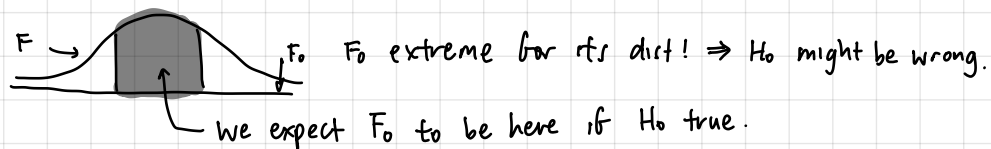 F F₀ F₀ extreme for its dist! ⇒ H₀ might be wrong.
we expect F₀ to be here if H₀ true.